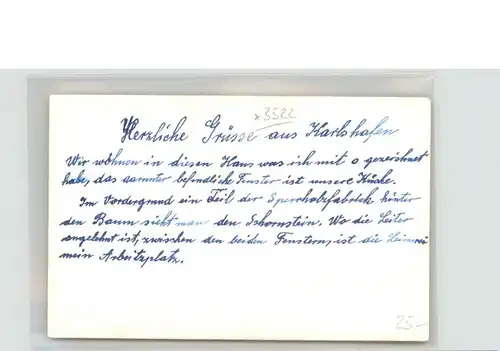 x3522
Herzliche Grüsse aus Karlshafen
Wir wöhnen in diesen Haus was ich mit o gezeichnet
habe, das darunter befindliche Fenster ist unsere Küche.
Im Vordergrund ein Teil der Sperrholzfabrick hinter
den Baum sieht man den Schornstein. Wo die Leiter
angelehnt ist, zwischen den beiden Fenstern, ist die Leimerei
mein Arbeitzplatz.
25-